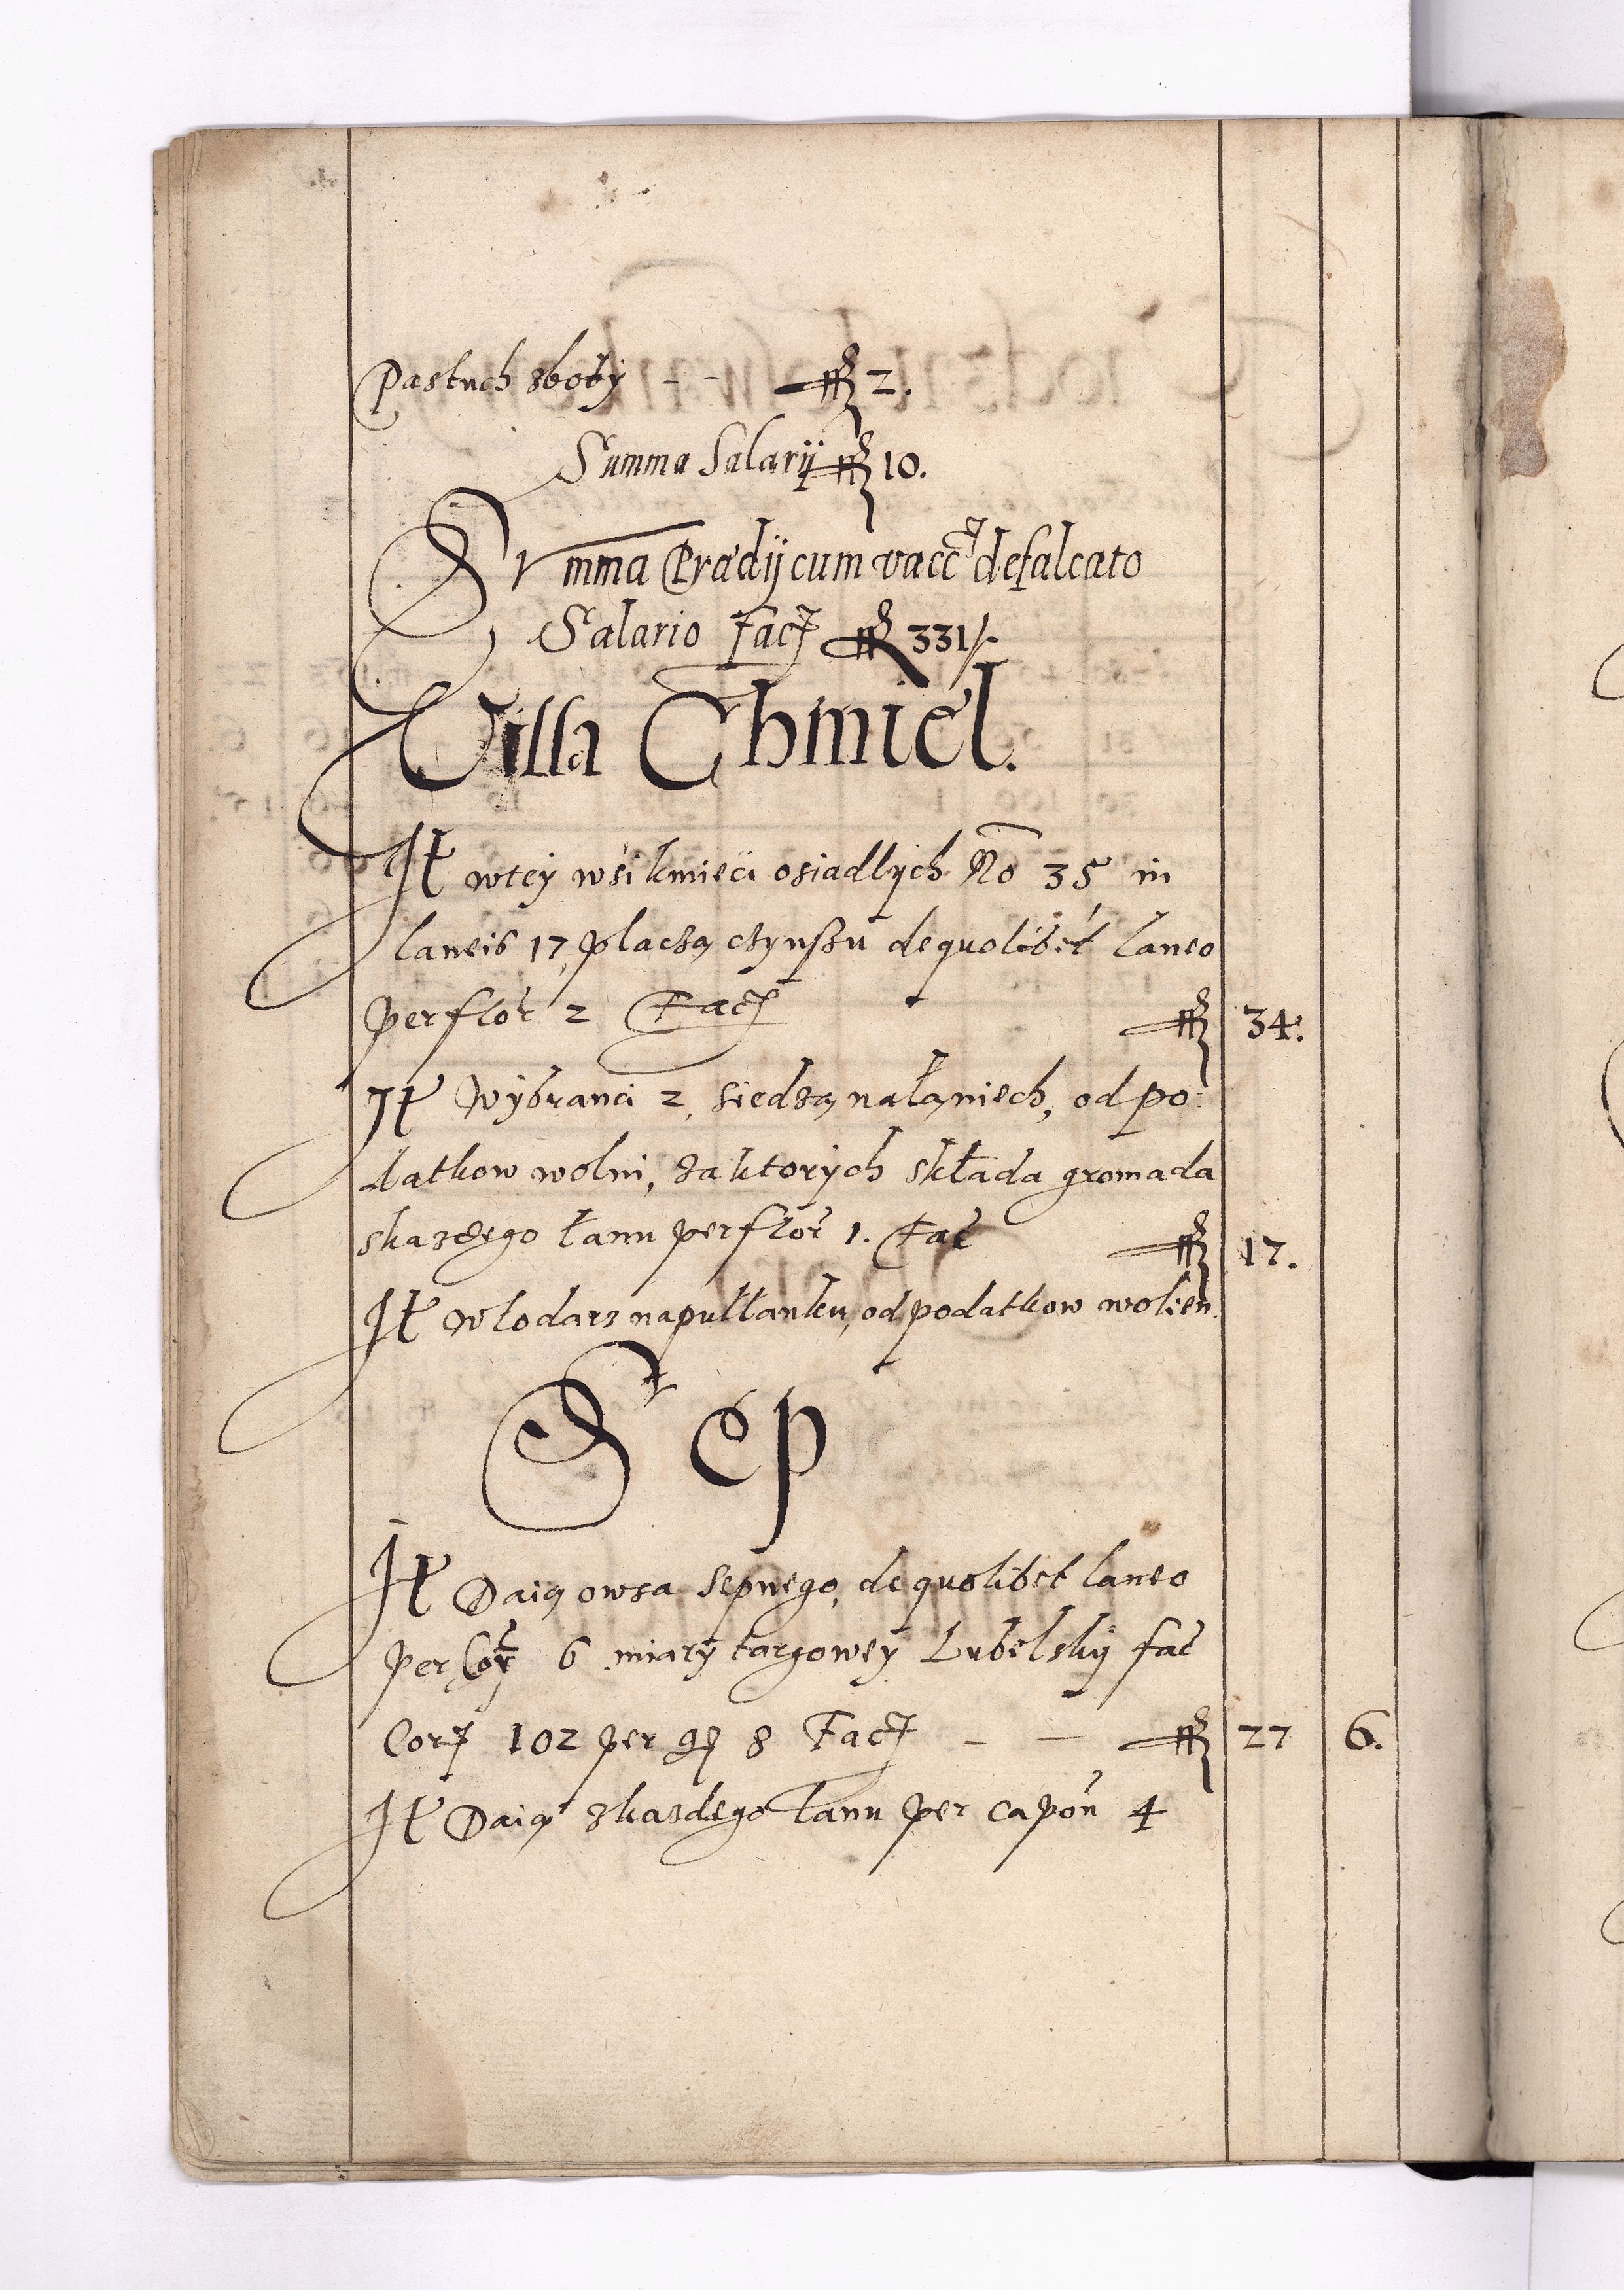 Pastuch zboży - - fl 2.
Summa Salarij fl 10.
Summa Prædij cum vacc defalcato
Salario Fac fl 331/-
Villa Chmiel.
It wtey wśi kmieci osiadlych No 35 in
laneis 17, placzą czynszu de quolibet laneo
per flor 2 Fac fl 34.
It Wybranci 2, siedzą na łaniech, od po
datkow wolni, za ktorych składa gromada
skazdego łanu per flor 1. Fac fl 17.
It Włodarz na pułłanku, od podatkow wolien.
Sep
It Daią owsa sepnego, de quolibet laneo
per Cor 6 miary targowey Lubelskiy fac
Cor 102 per gr 8 Fac - - fl 27 6.
It Daią zkazdego łanu per capon 4